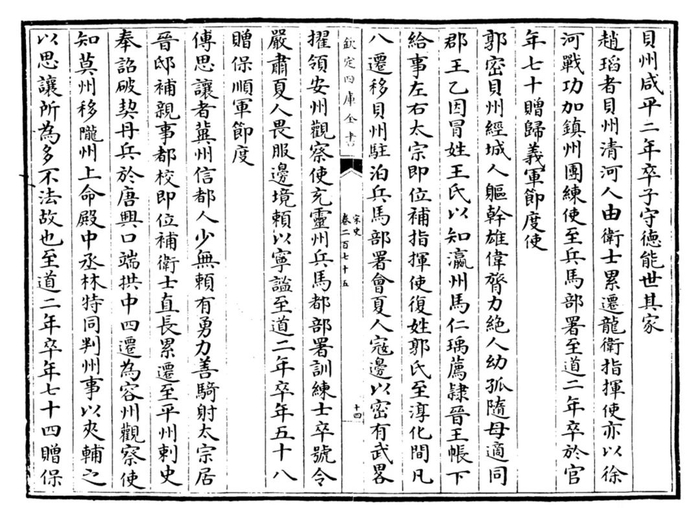 貝州咸平二年卒子守德能世其家
趙瑫者貝州清河人由衛士累遷龍衛指揮使亦以徐
河戰功加鎮州團練使至兵馬部署至道二年卒於官
年七十贈歸義軍節度使
郭密貝州經城人軀幹雄偉膂力絕人幼孤隨母適同
郡王乙因冒姓王氏以知瀛州馬仁瑀薦隸晉王帳下
給事左右太宗即位補指揮使復姓郭氏至淳化間凡
八遷移貝州駐泊兵馬部署會夏人寇邊以密有武畧
欽定四庫全書
宋史
卷二百七十五
十四
擢領安州觀察使充靈州兵馬都部署訓練士卒號令
嚴肅夏人畏服邊境賴以寧謐至道二年卒年五十八
贈保順軍節度
傅思讓者冀州信都人少無賴有勇力善騎射太宗居
晉邸補親事都校即位補衛士直長累遷至平州刺史
奉詔破契丹兵於唐興口端拱中四遷為容州觀察使
知莫州移隴州上命殿中丞林特同判州事以夾輔之
以思讓所為多不法故也至道二年卒年七十四贈保